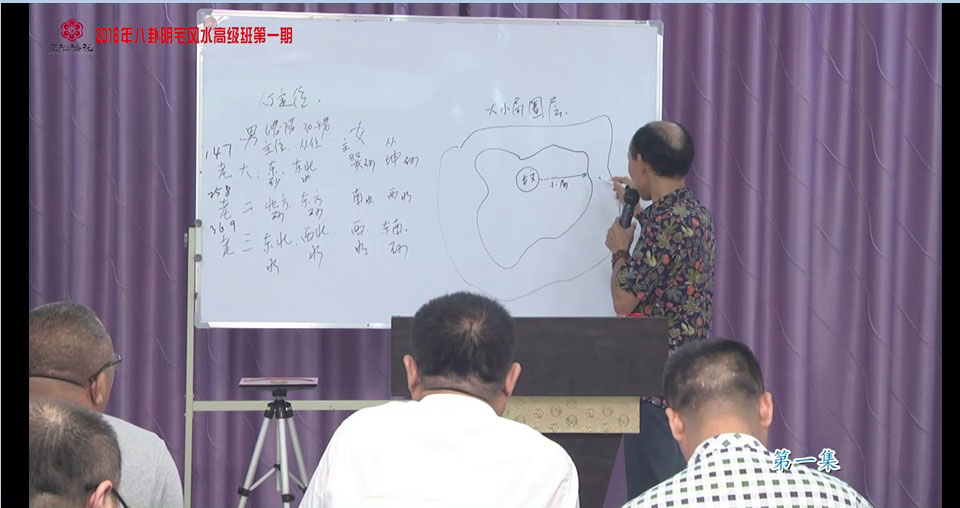 2018年八卦阴宅风水高级班第一期
六定位.
大小局圈层.
男
女
主位. 从位
主 从
147
老大: 东 东北
砂 水
巽砂 坤砂
258
老二 北方 东方
砂 砂
南水 西水
369
老三 东北 西北
水 水
西 东南.
水 砂
小局
第一集